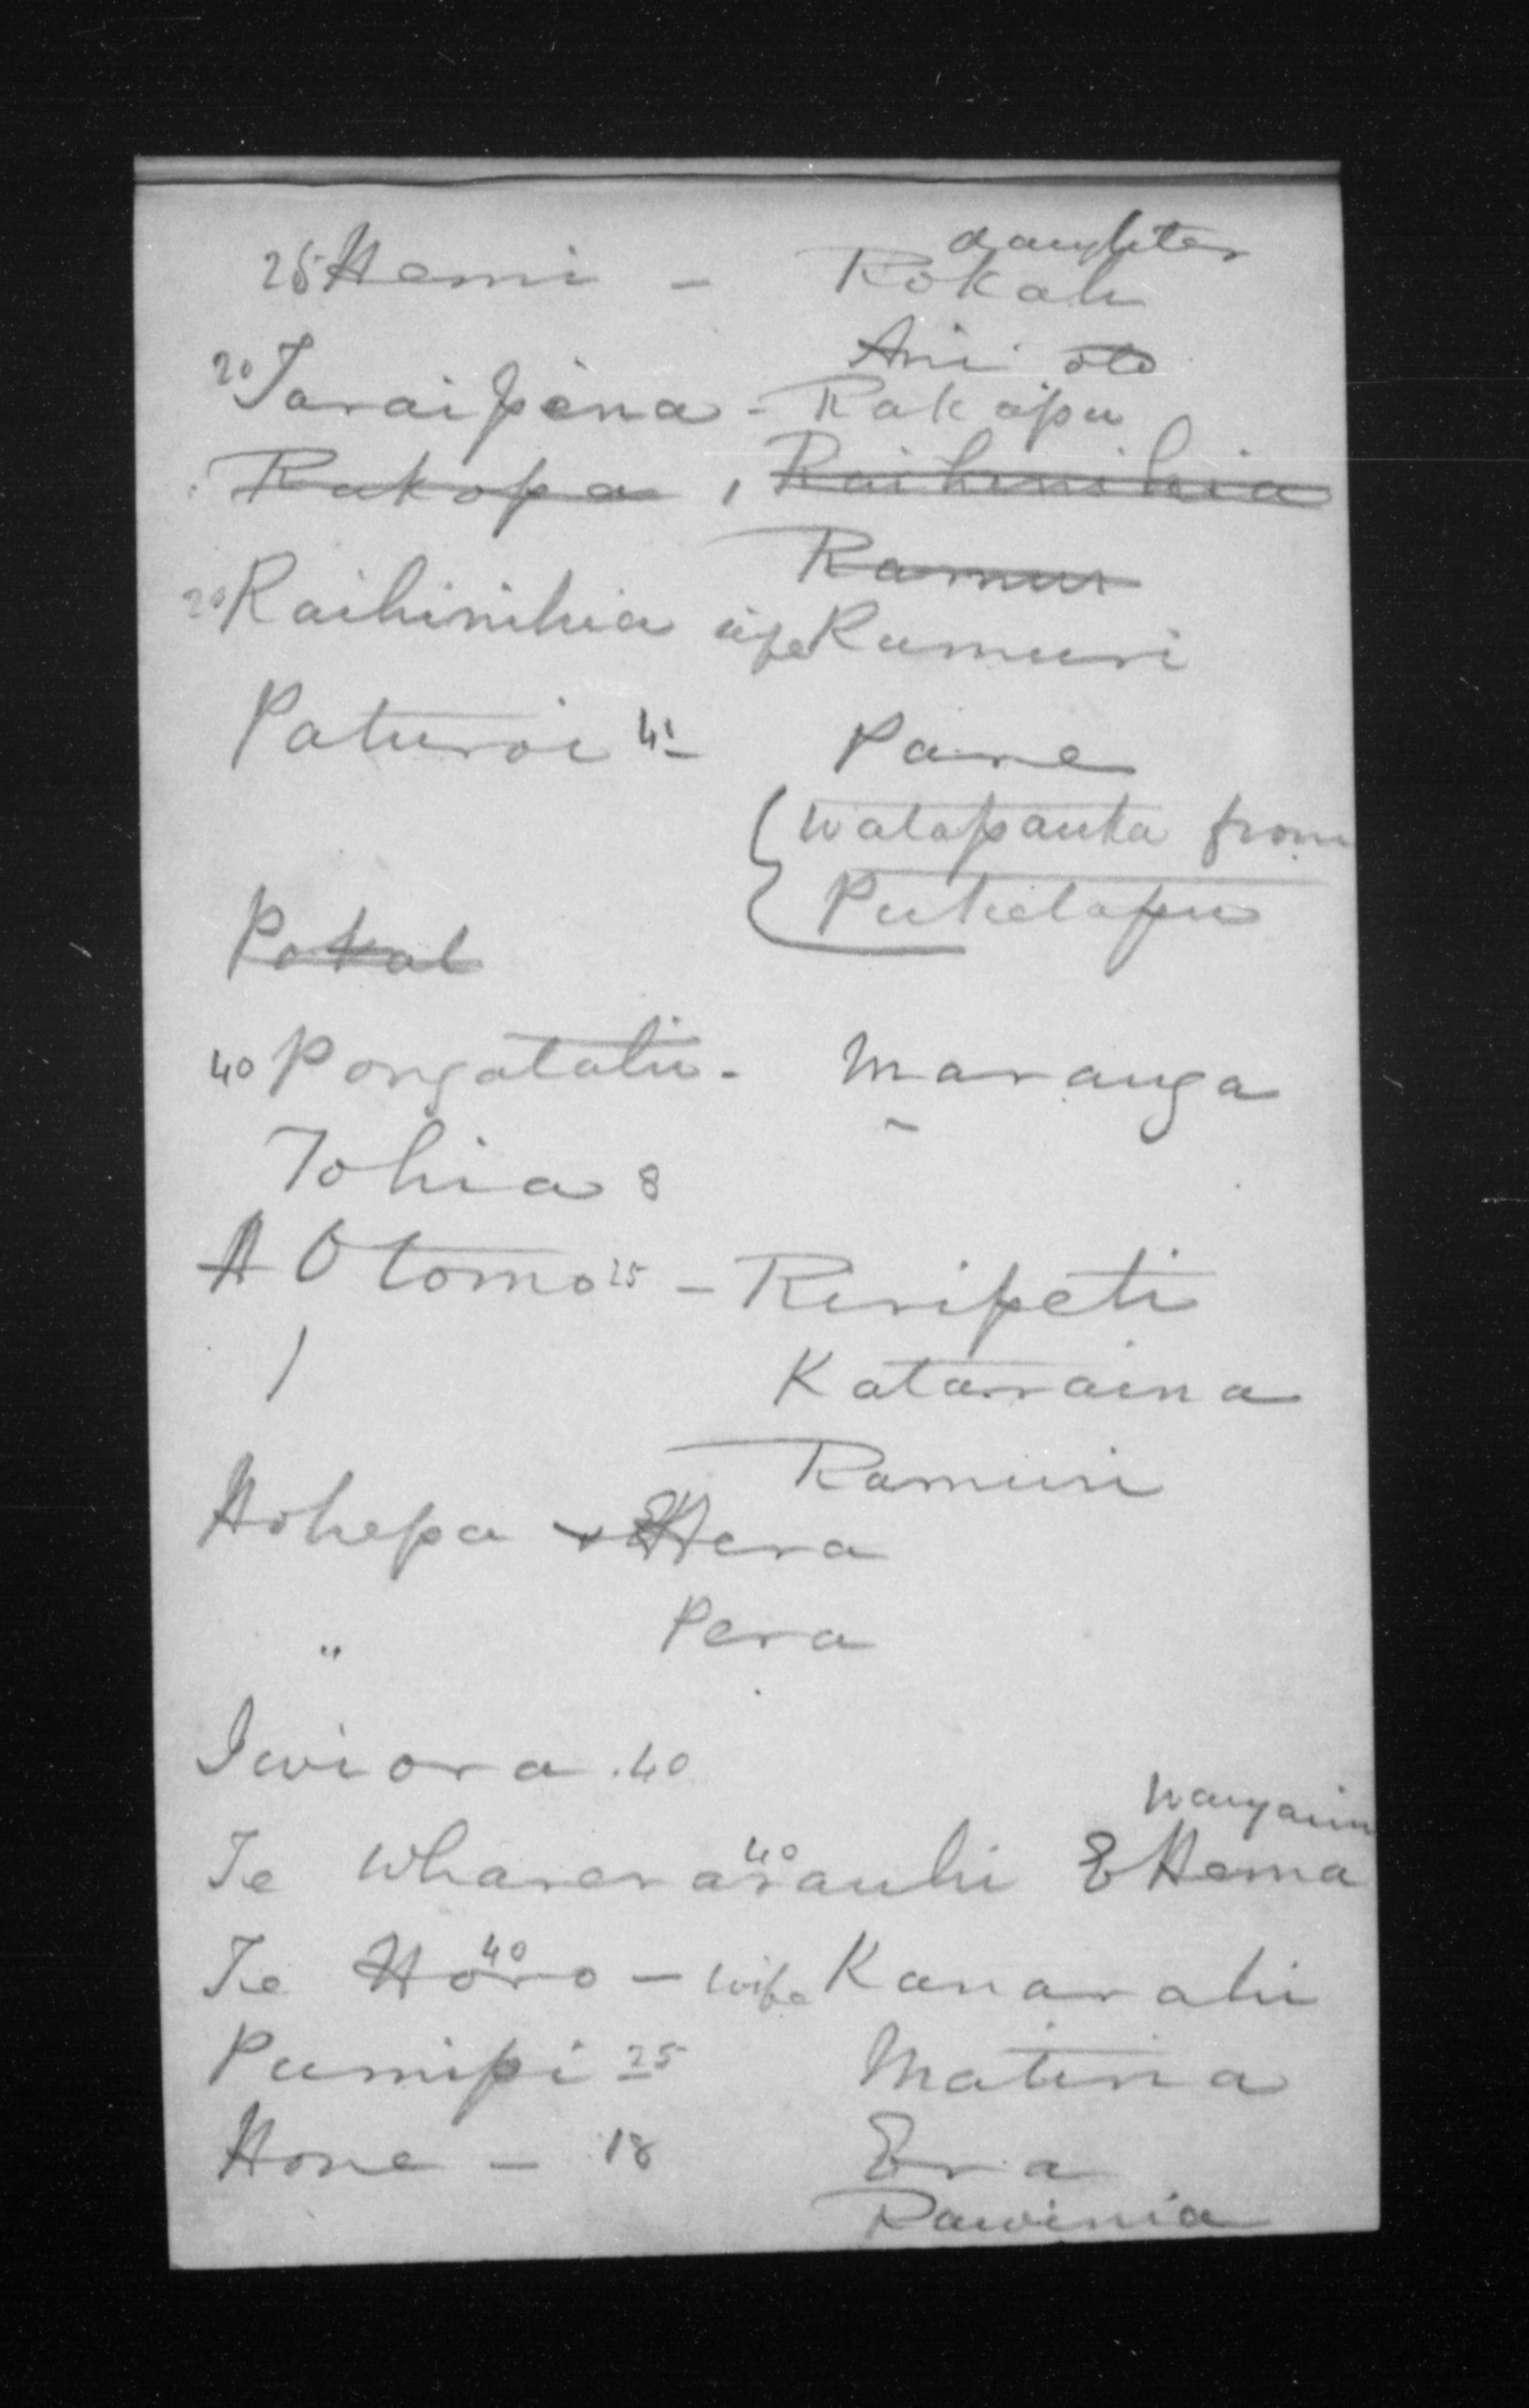 daughter
25 Hemi - Rokah
Ani
20 Taraipina - Rakapu
Rakopa , Raihinihia
Ramur
20 Raihinihia wife Ramuri
Paturoi 41 - Pare
Watapauka from
Puketapu
Pokal
40 Pongatatu - Maranga
Tohia 8
A Otomo 25 - Riripeti
Kataraina
Ramuri
Hohepa Hera
" Pera
Iwiora 40
Te Whareraraauhi 40 E Hema
Te Horo 40 - wife Kanarahi
Pumipi 25 Matina
Hone - 18 Era
Rawinia